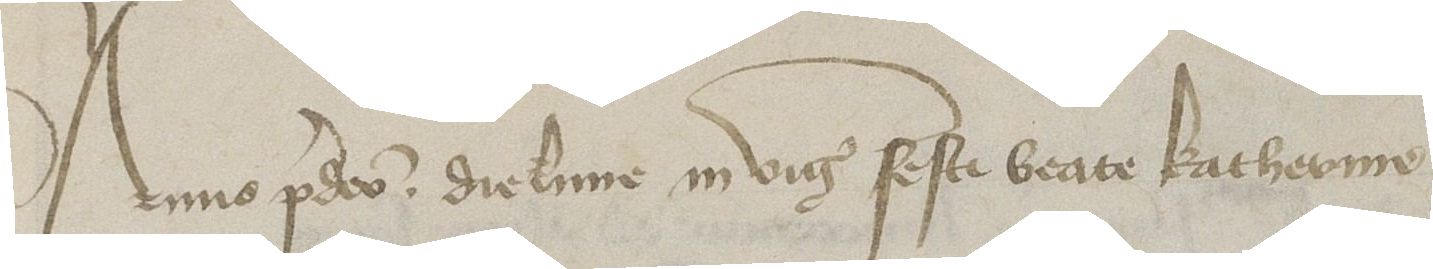 Anno p̄dco̅. die lune in vigꝭ festi beate katherine